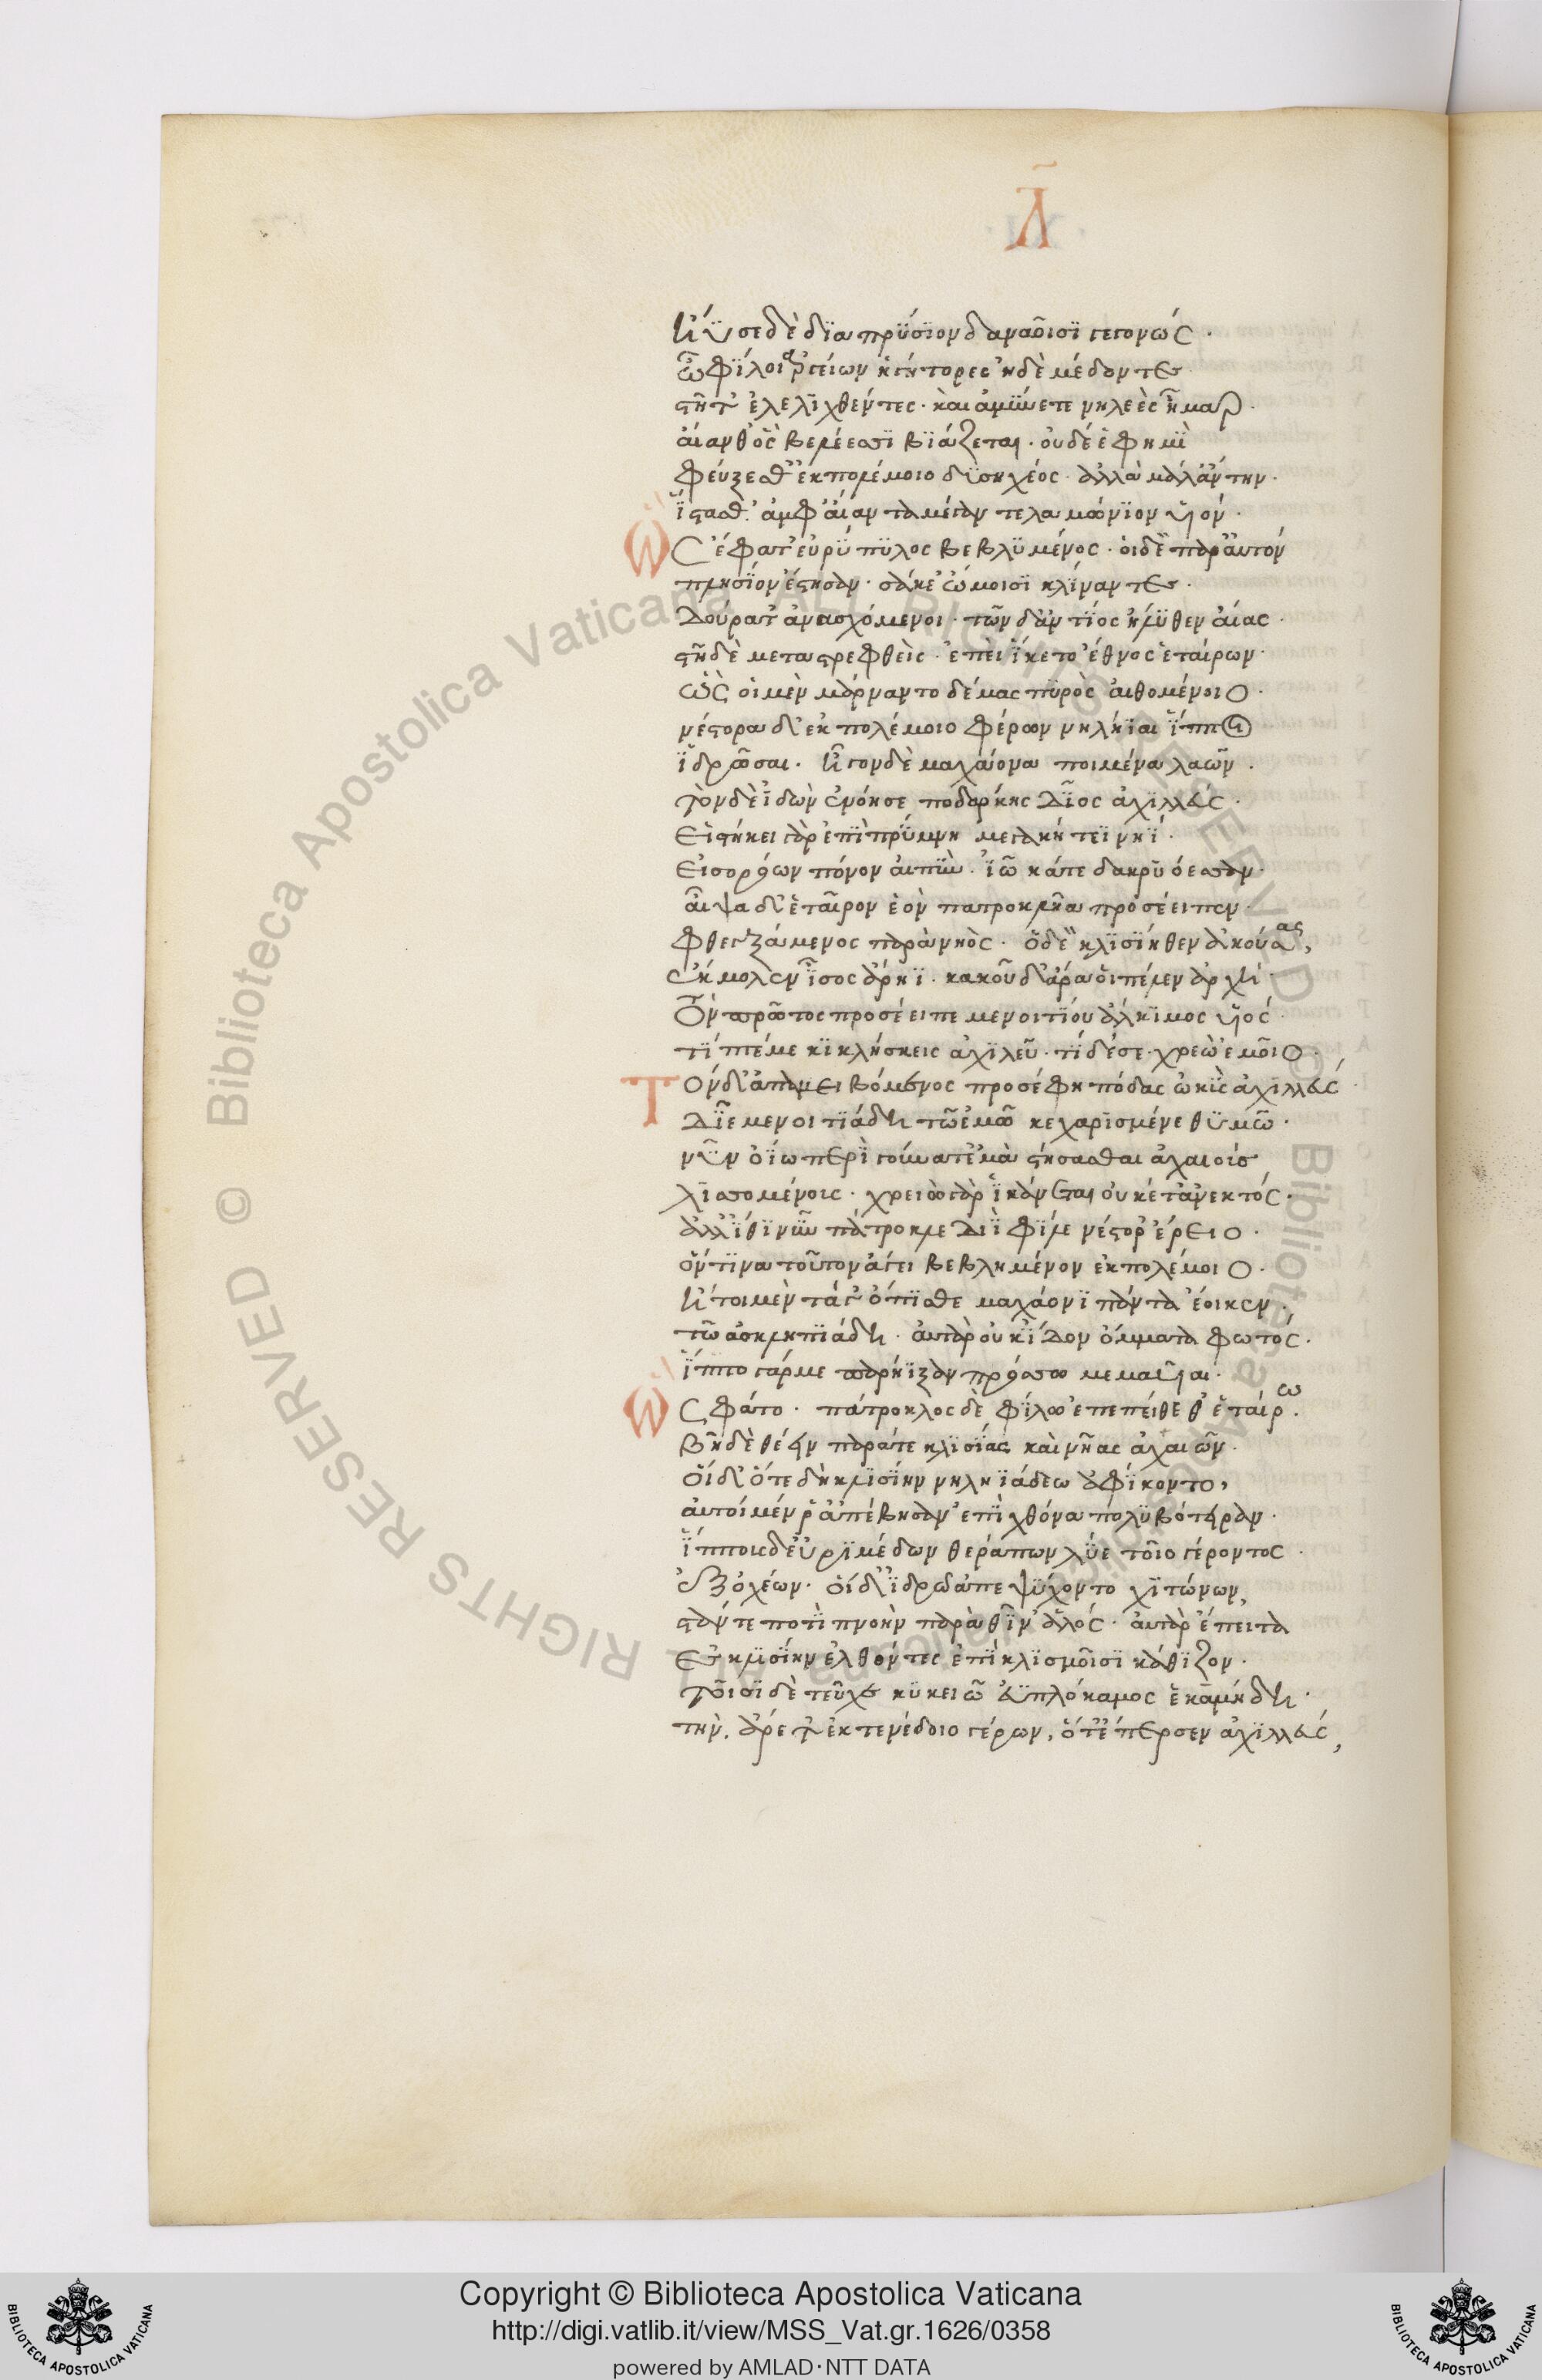 Λ̄
ἤϋσε δὲ δϊαπρΰσϊον δαναοῖσϊ γεγονώς·
ὦ φΐλοι ἀργείων ἡγήτορες ἠδὲ μέδοντες
στῆτ' ἐλελϊχθέντες· καὶ ἀμΰνετε νηλεὲς ἦμαρ·
αἴανθ' ὃς βελέεσσϊ βϊάζεται· οὐδέ ἕ φημῒ
φεύξεσθ' ἐκ πολέμοιο δϋσηχέος· ἀλλὰ μάλ' ἄντην·
ἵ̈στασθ' ἀμφ' αἴαντα μέγαν τελαμώνϊον υἱόν·
Ὣς ἔφατ' εὐρΰπϋλος βεβλημένος· οἱ δὲ παρ' αὐτὸν
πλησΐον ἔστησαν· σάκε' ὤμοισϊ κλΐναντες·
δούρατ' ἀνασχόμενοι· τῶν δ' ἀντΐος ἤλϋθεν αἴας·
στῆ δὲ μεταστρεφθεὶς· ἐπεὶ ἵ̈κετο ἔθνος ἑταίρων·
ὣς οἱ μὲν μάρναντο δέμας πϋρὸς αἰθομένοιο·
νέστορα δ' ἐκ πολέμοιο φέρον νηλήϊαι ἵ̈πποι
ἱ̈δρῶσαι· ἦγον δὲ μαχάονα ποιμένα λαῶν·
τὸν δὲ ἰ̈δὼν ἐνόησε ποδάρκης δῖος ἀχϊλλεύς·
εἱστήκει γὰρ ἐπῒ πρΰμνη μεγακήτεϊ νηΐ·
εἰσορόων πόνον αἰπῢν· ἰ̈ῶκά τε δακρϋόεσσαν·
αἶψα δ' ἑταῖρον ἑὸν πατροκλῆα προσέειπεν·
φθεγξάμενος παρὰ νηὸς· ὃ δὲ κλϊσΐηθεν ἀκούσας,
ἔκμολεν ἶ̈σος ἄρηϊ· κακοῦ δ' ἄρα οἱ πέλεν ἀρχή·
τὸν πρῶτος προσέειπε μενοιτΐου ἄλκϊμος υἱός·
τΐπτέ με κϊκλήσκεις ἀχϊλεῦ· τΐ δέ σε χρεὼ ἐμοῖο·
Τὸν δ' ἀπαμειβόμενος προσέφη πόδας ὠκὺς ἀχϊλλεύς
δῖε μενοιτϊάδη τῷ ἐμῷ κεχαρϊσμένε θϋμῷ·
νῦν ὀΐω περῒ γούνατ' ἐμὰ στήσεσθαι ἀχαιοὺς
λϊσσομένους· χρειὼ γὰρ ἱ̈κάνεται οὐκέτ' ἀνεκτός·
ἀλλ' ἴ̈θϊ νῦν πάτροκλε διῒ φΐλε νέστορ' ἔρειο·
ὅντϊνα τοῦτον ἄγει βεβλημένον ἐκ πολέμοιο·
ἤτοι μὲν τά γ' ὄπϊσθε μαχάονϊ πάντα ἔοικεν·
τῷ ἀσκληπϊάδη· ἀτὰρ οὐκ ἴ̈δον ὄμματα φωτός·
ἵ̈πποι γάρ με παρήϊξαν πρόσσω μεμαυῖαι·
Ὣς φάτο· πάτροκλος δὲ φΐλῳ ἐπεπείθεθ' ἑταίρω·
βῆ δὲ θέειν παρά τε κλϊσΐας καὶ νῆας ἀχαιῶν·
οἱ δ' ὅτε δὴ κλϊσΐην νηληϊάδεω ἀφΐκοντο,
αὐτοὶ μέν ῥ' ἀπέβησαν ἐπῒ χθόνα πολϋβότειραν·
ἵ̈ππους δ' εὐρϋμέδων θεράπων λΰε τοῖο γέροντος·
ἐξ ὀχέων· οἱ δ' ἱ̈δρῶ ἀπεψΰχοντο χϊτώνων,
στάντε ποτῒ πνοιὴν παρὰ θῖν' ἁλός· αὐτὰρ ἔπειτα
ἐς κλϊσΐην ἐλθόντες ἐπῒ κλϊσμοῖσϊ κάθϊζον·
τοῖσϊ δὲ τεῦχε κϋκειῶ ἐϋπλόκαμος ἑκαμήδη·
τὴν ἄρετ' ἐκ τενέδοιο γέρων, ὅτε πέρσεν ἀχϊλλεύς,
Copyright © Biblioteca Apostolica Vaticana
http://digi.vatlib.it/view/MSS_Vat.gr.1626/0358
powered by AMLAD·NTT DATA